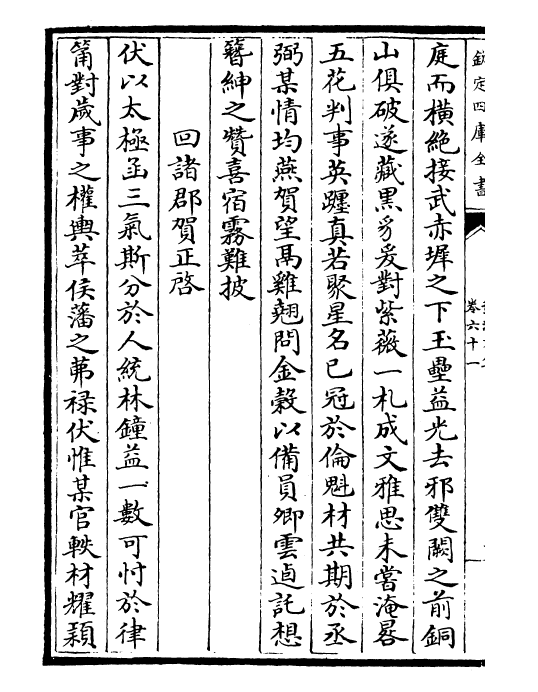 欽定四庫全書
卷六十一
庭而橫絶接武赤墀之下玉壘益光去邪雙闕之前銅
山俱破遂藏黒豸爰對紫薇一札成文雅思未嘗淹晷
五花判事英躔真若聚星名已冠於倫魁材共期於丞
弼某情均燕賀望鬲雞翹問金穀以備員卿雲逈託想
簪紳之贊喜宿霧難披
回諸郡賀正啓
伏以太極函三氣斯分於人統林鐘益一數可忖於律
筩對歲事之權輿萃侯藩之茀禄伏惟某官軼材耀穎